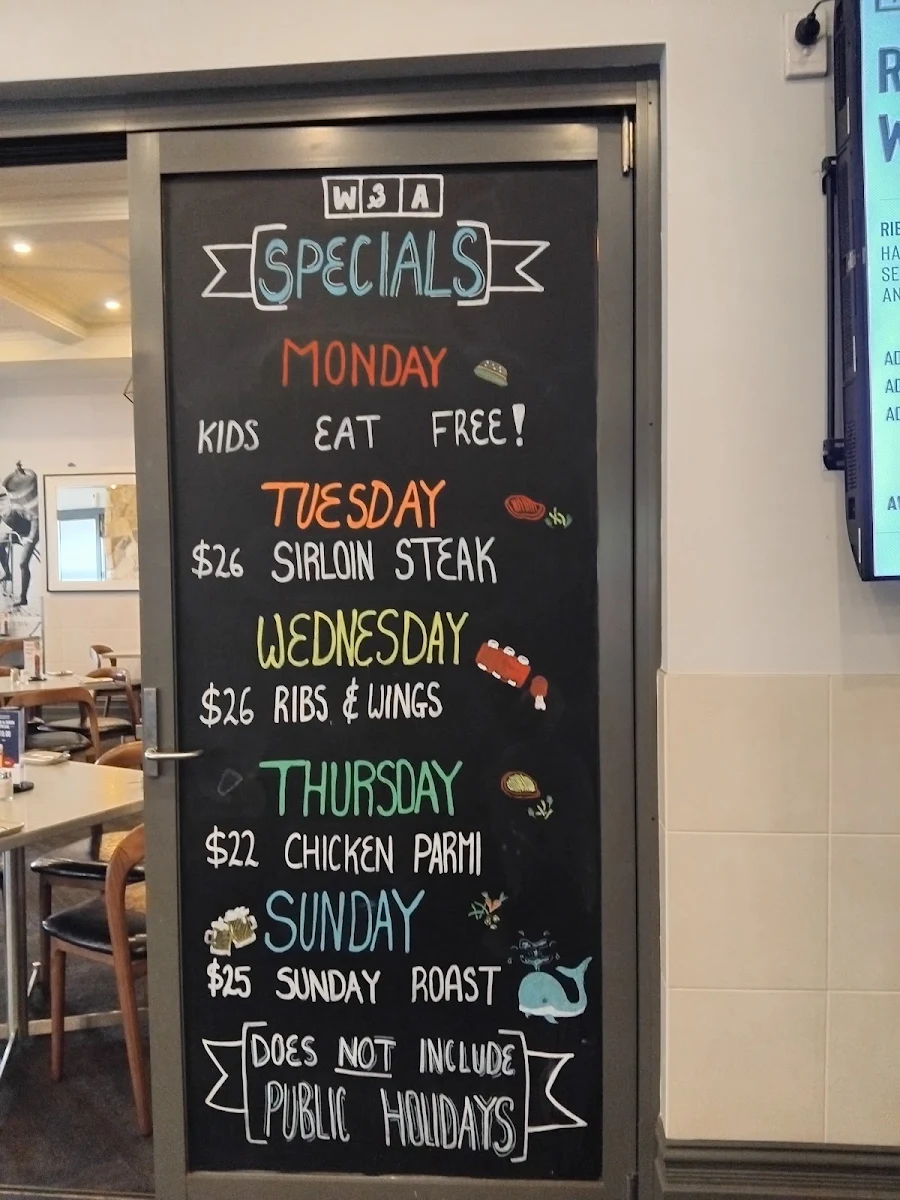 W 3 A
SPECIALS
MONDAY
KIDS EAT FREE!
TUESDAY
$26 SIRLOIN STEAK
WEDNESDAY
$26 RIBS & WINGS
THURSDAY
$22 CHICKEN PARMI
SUNDAY
$25 SUNDAY ROAST
DOES NOT INCLUDE
PUBLIC HOLIDAYS